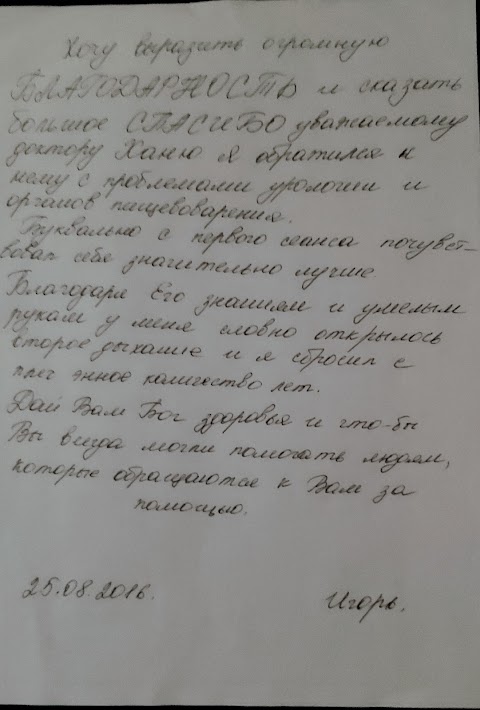 Хочу выразить огромную
БЛАГОДАРНОСТЬ и сказать
большое СПАСИБО уважаемому
доктору Ханю я обратился к
нему с проблемами урологии и
органов пищеварения.
Буквально с первого сеанса почувст-
вовал себя значительно лучше
Благодаря Его знаниям и умелым
рукам у меня словно открылось
второе дыхание и я сбросил с
плеч энное количество лет.
Дай Вам Бог здоровья и что-бы
Вы всегда могли помогать людям,
которые обращаются к Вам за
помощью.
25.08.2016.
Игорь.